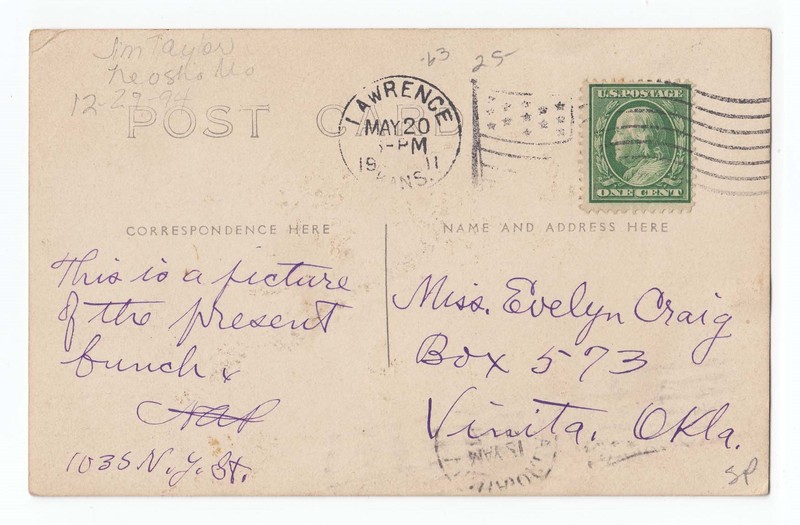 Jim Taylor
Neosho Mo
12-27-94
.63
25-
POST CARD
LAWRENCE
MAY 20
-PM
19 11
KANS.
U.S. POSTAGE
ONE CENT
CORRESPONDENCE HERE
NAME AND ADDRESS HERE
This is a picture
of the present
bunch
1035 N. Y. St.
Miss. Evelyn Craig
Box 573
Vinita, Okla.
SP